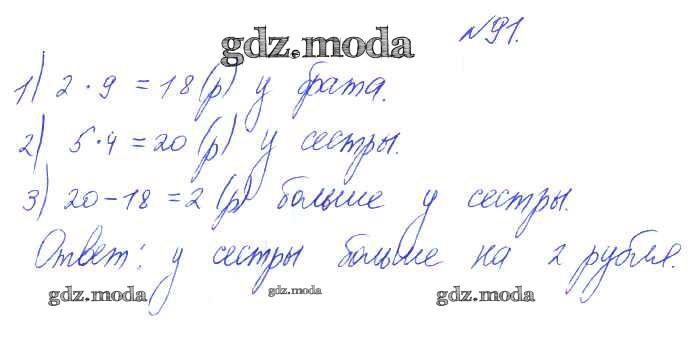 №91.
gdz.moda
1) 2 · 9 = 18 (р) у брата.
2) 5 · 4 = 20 (р) у сестры.
3) 20 - 18 = 2 (р) больше у сестры.
Ответ: у сестры больше на 2 рубля.
gdz.moda gdz.moda gdz.moda